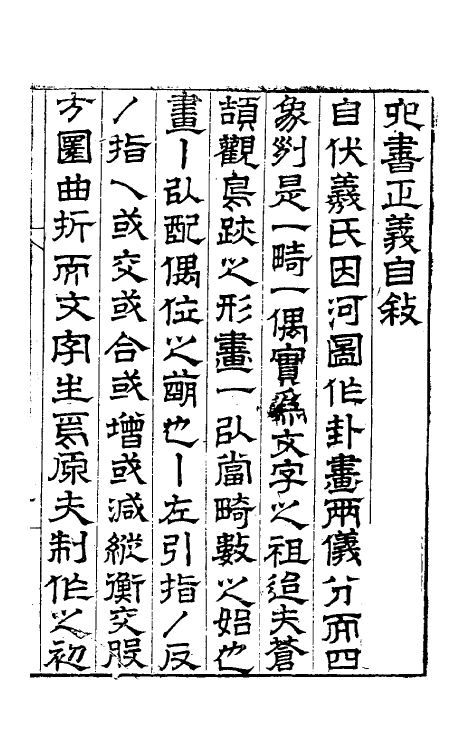 六書正義自敍
自伏羲氏因河圖作卦畫兩儀分而四
象列是一畸一偶實爲文字之祖迨夫蒼
頡觀鳥跡之形畫一㠯當畸數之始也
畫丨㠯配偶位之萠也丨左引指丿反
丿指乀或交或合或增或減縱衡交股
方圜曲折而文字生焉原夫制作之初